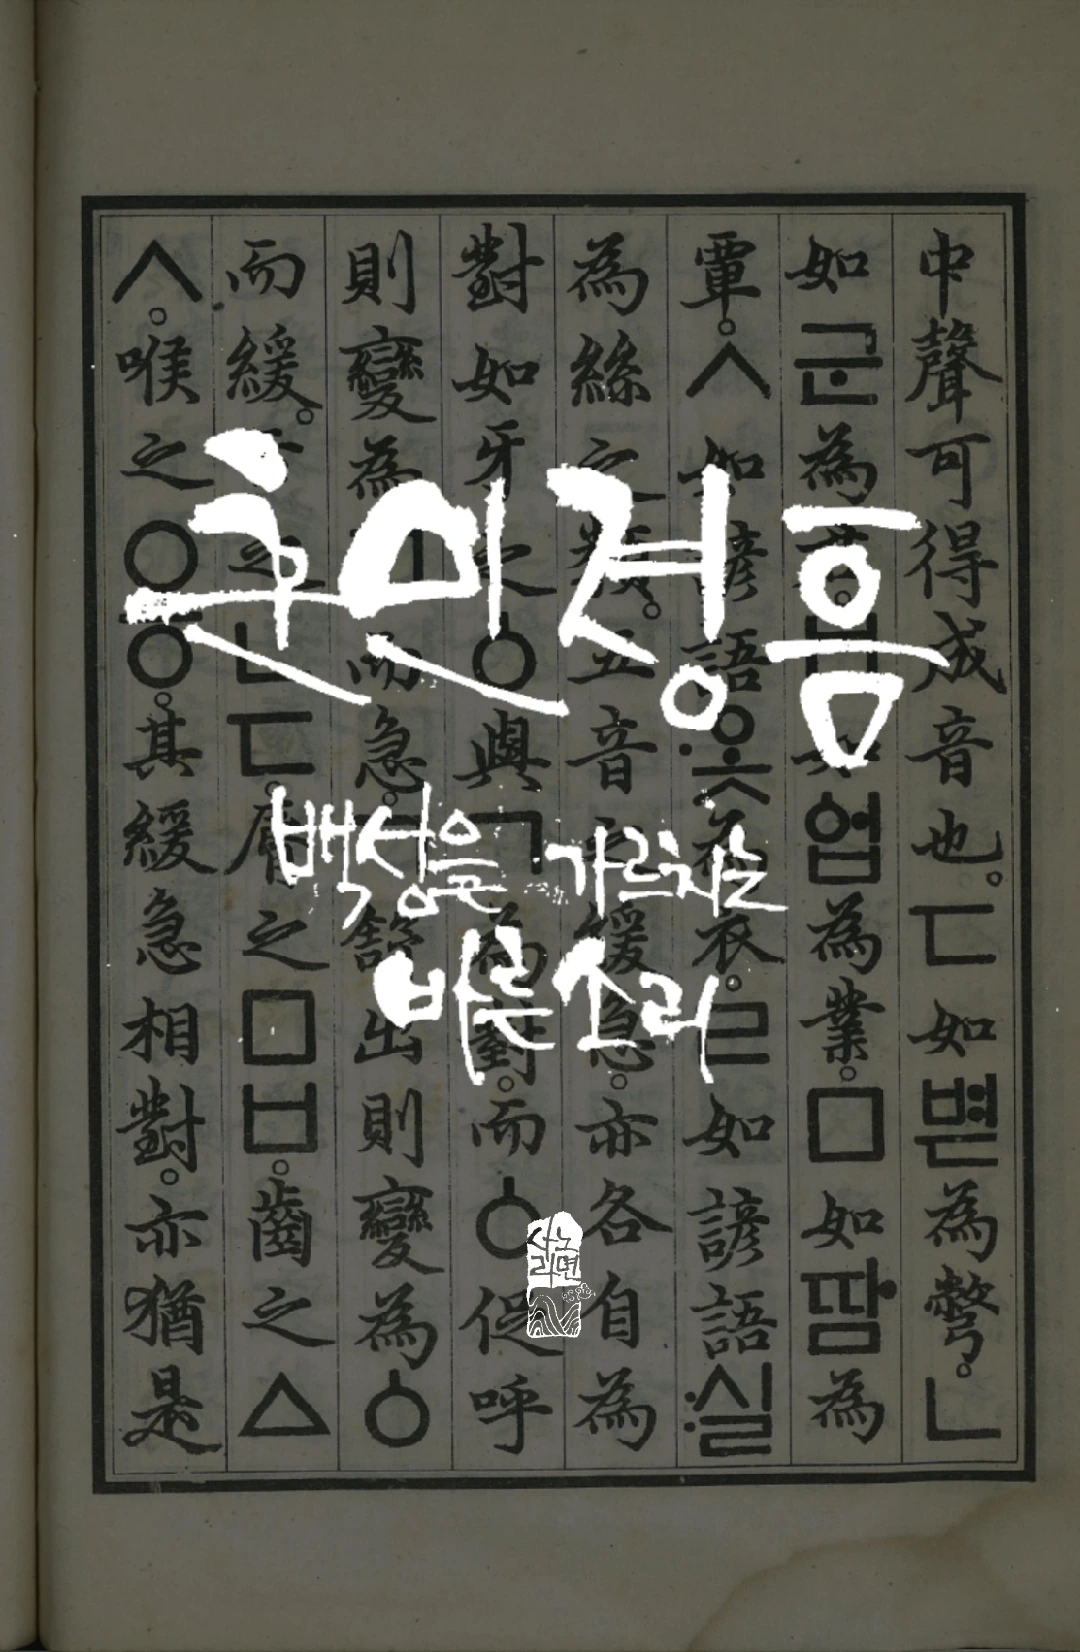 훈민정ᅙᅳᆷ
백성을 가르치는
바른소리
사노
라면
中聲可得成音也。ㄷ如볃為彆。ㄴ
如군為君。ㅂ如업為業。ㅁ如땀為
覃。ㅅ如諺語·옷為衣。ㄹ如諺語:실
為絲之類。五音之緩急。亦各自為
對。如牙之ㆁ與ㄱ為對。而ㆁ促呼
則變為ㄱ而急。ㄱ舒出則變為ㆁ
而緩。舌之ㄴㄷ。脣之ㅁㅂ。齒之ㅿ
ㅅ。喉之ㅇㆆ。其緩急相對。亦猶是